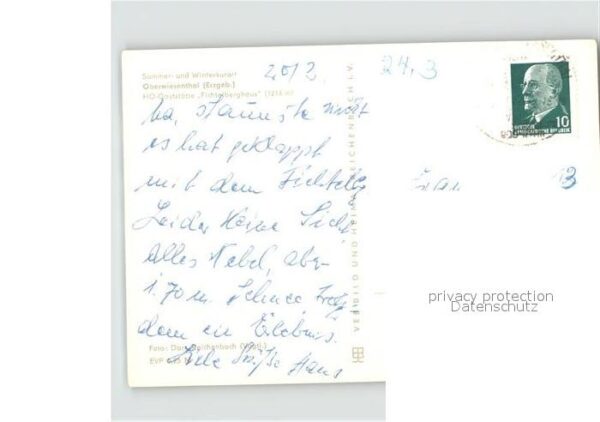 Sommer- und Winterkurort
Oberwiesenthal (Erzgeb.)
HO-Gaststätte „Fichtelberghaus" (1214 m)
24.3
Na, staunste nicht
es hat geklappt
mit dem Fichtelbg
Leider keine Sicht
Alles Nebel, aber
1.70 m. Schnee Trotz
dem ein Erlebnis.
Viele Grüße Hans
Foto: Darr, Reichenbach (Vogtl.)
VEB BILD UND HEIMAT REICHENBACH I. V.
Frau
10
DEUTSCHE
DEMOKRATISCHE REPUBLIK
privacy protection
Datenschutz